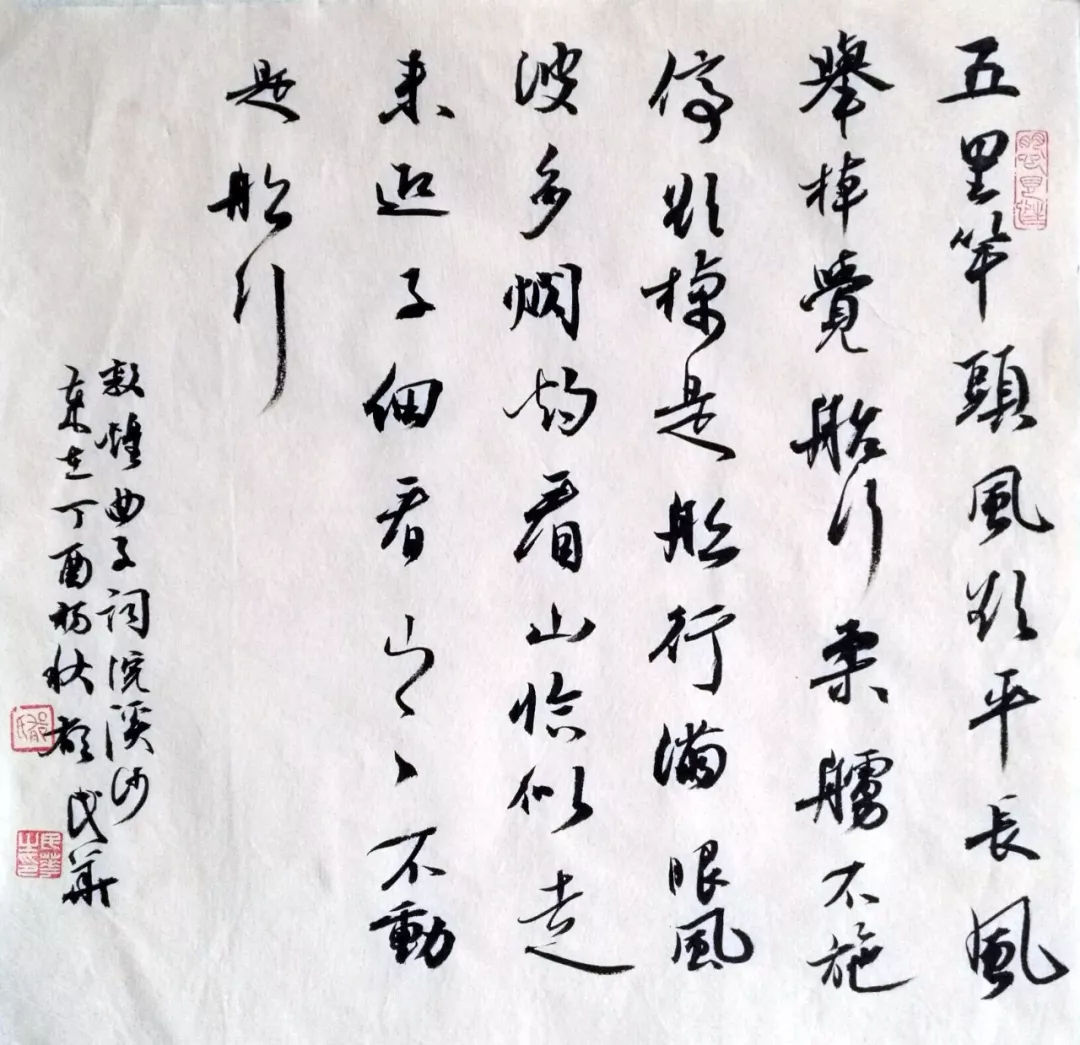 五里竿頭風欲平長風
舉棹覺船行柔艣不施
停欲棹是船行滿眼風
波多熌灼看山恰似走
来迎子細看山〻不動
是船行
敦煌曲子詞浣溪沙
丁酉初秋民華
民華之印